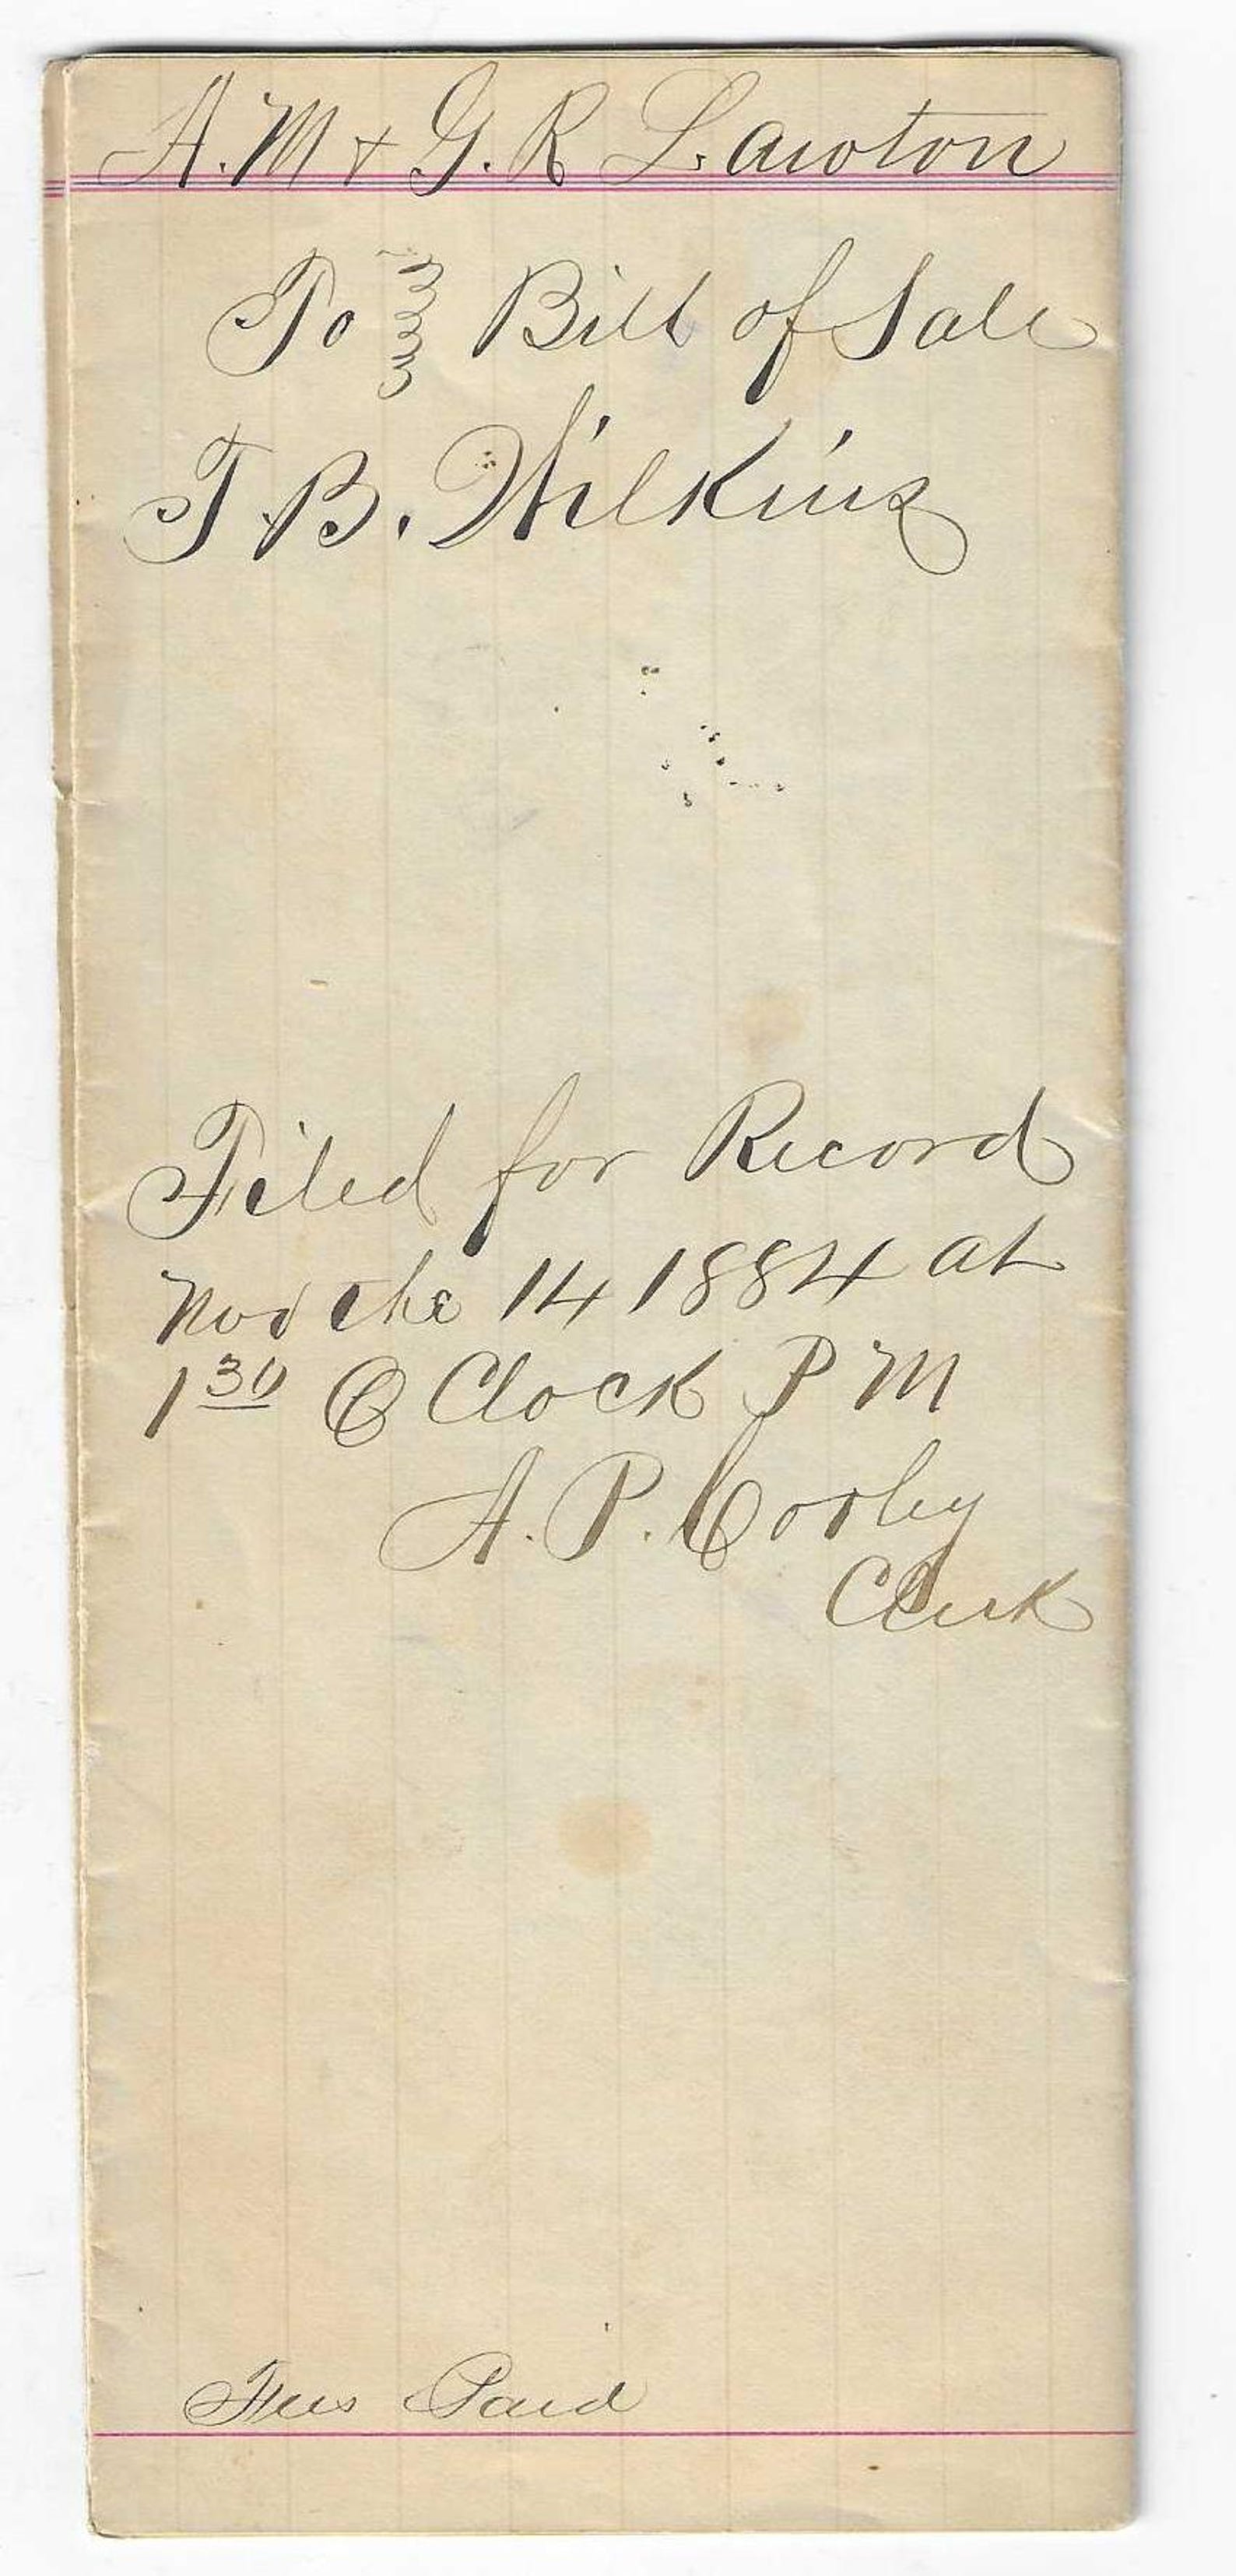 A. M & G. R Lawton
To Bill of Sale
T. B. Wilkins
Filed for Record
Nov the 14 1884 at
1 30 O Clock P M
A. P. Corley
Clerk
Fees Paid